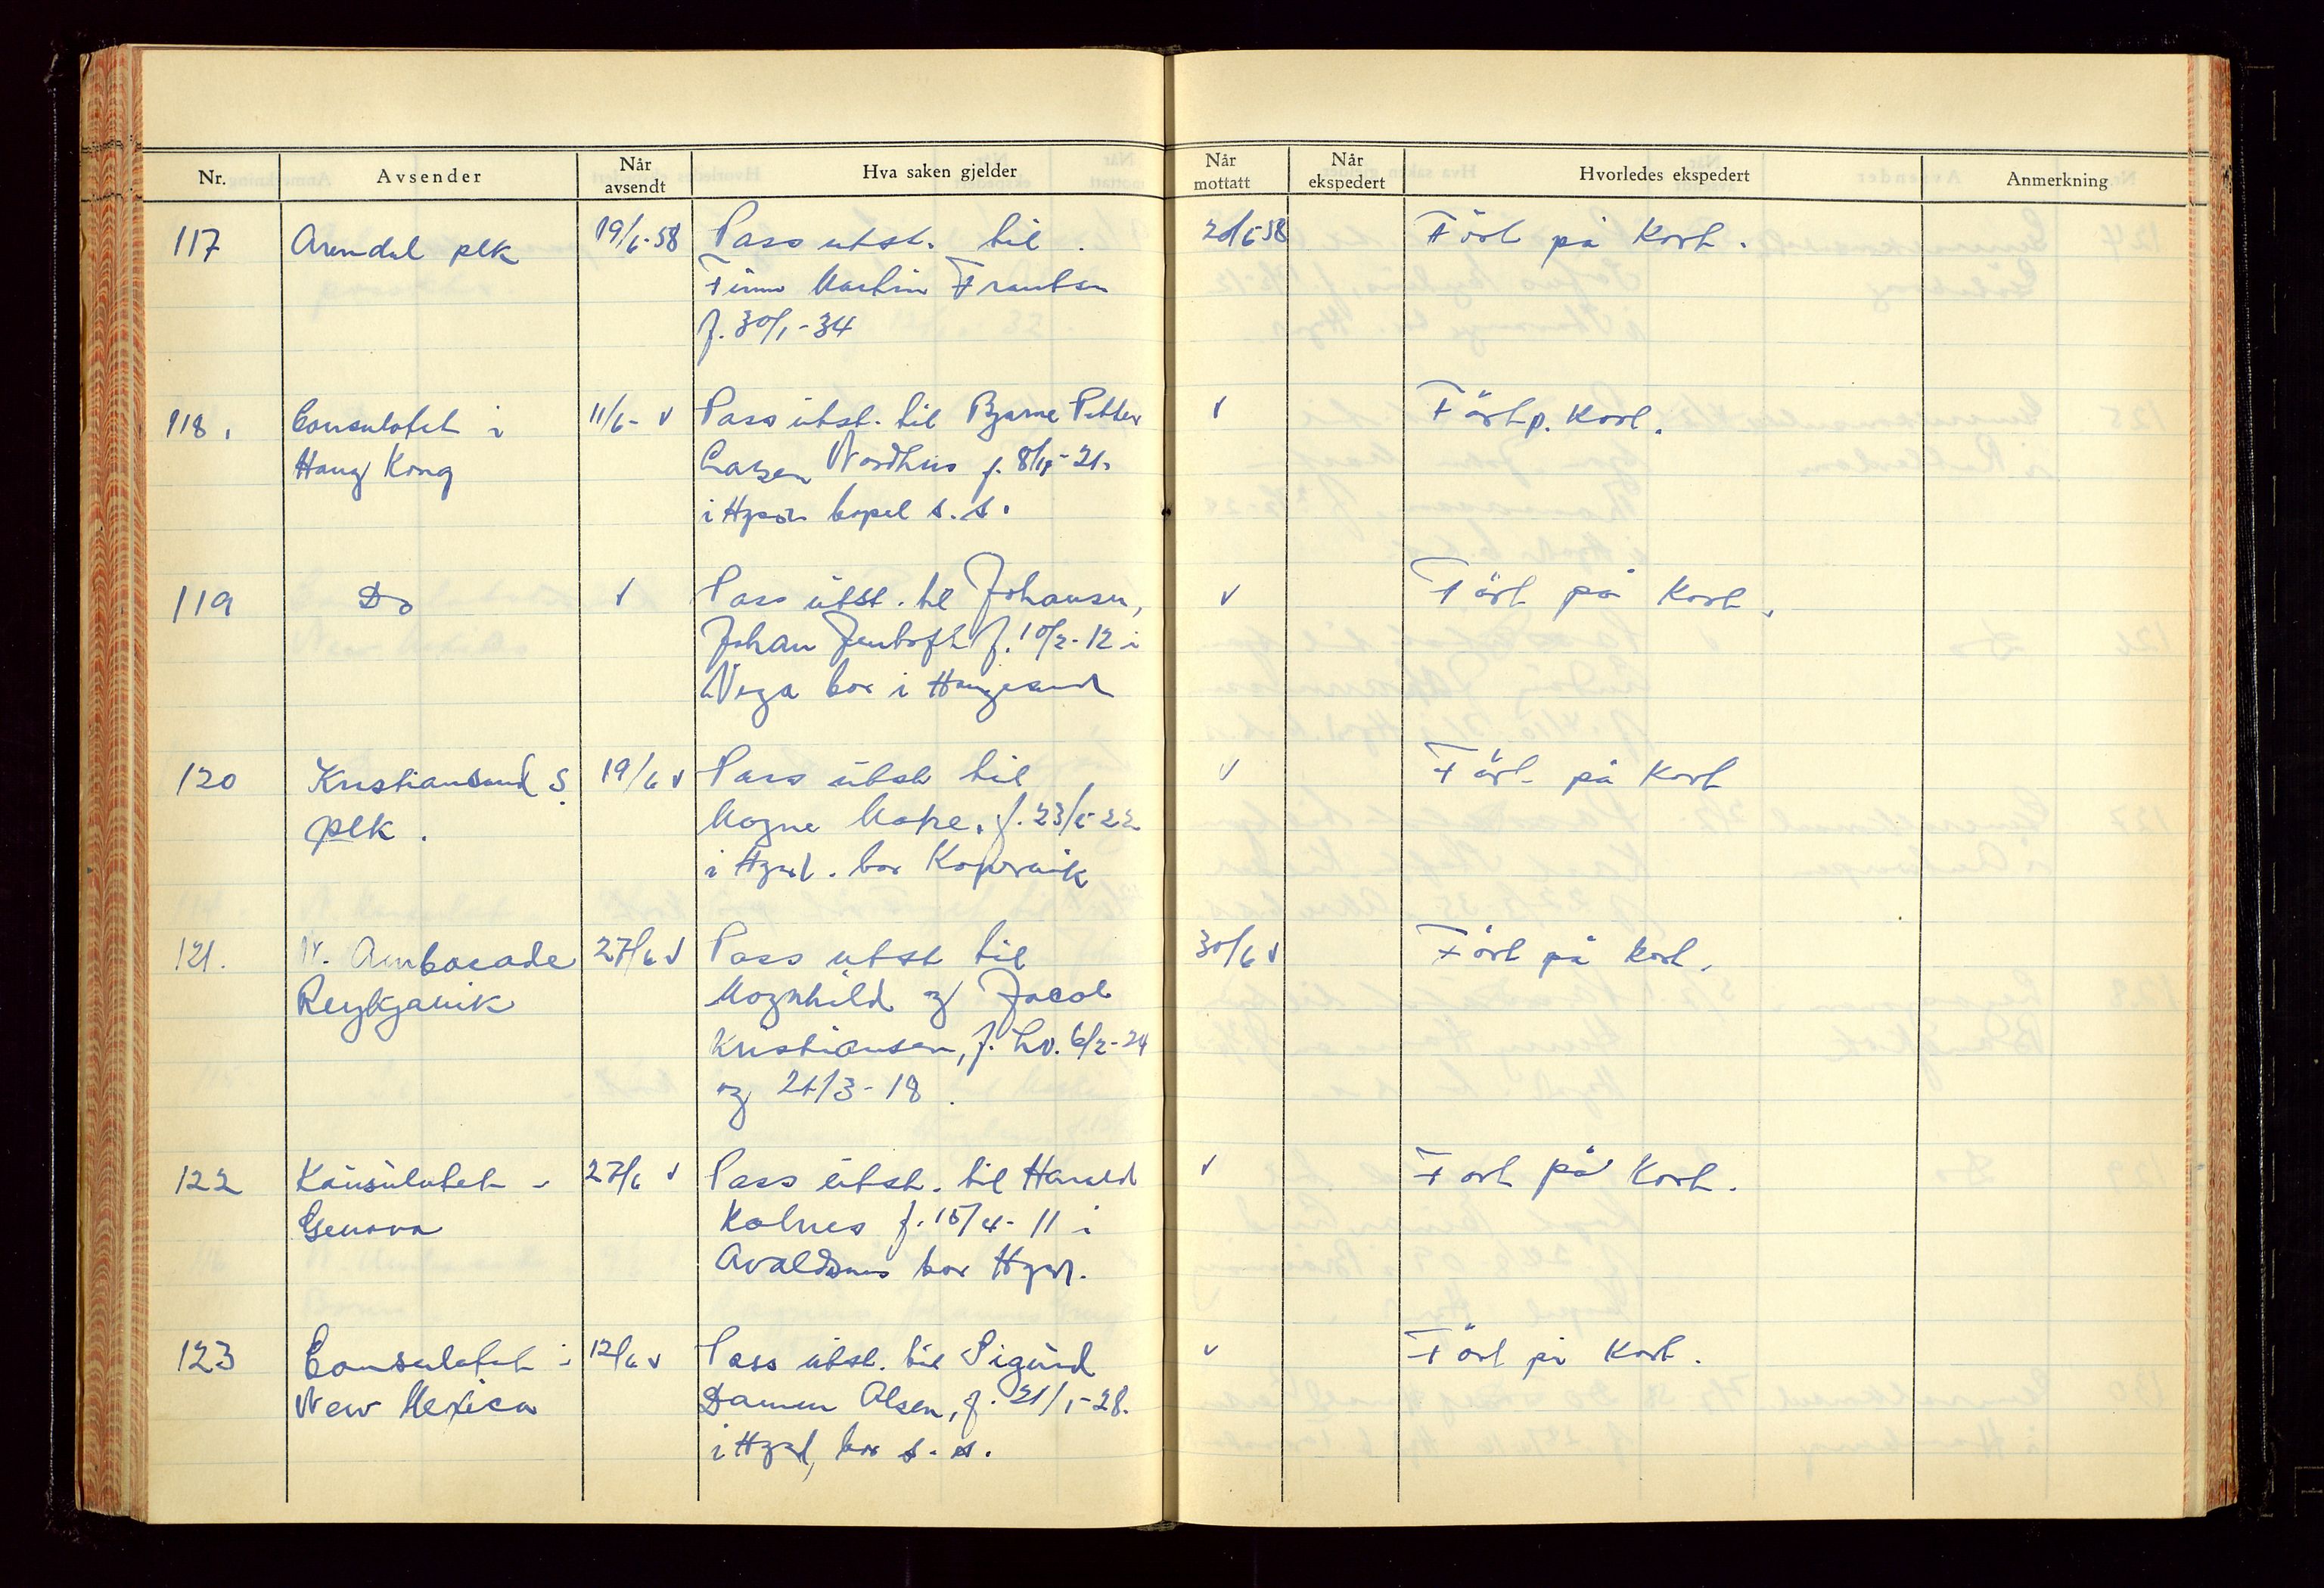 Nr. Avsender Når avsendt Hva saken gjelder Når mottatt Når ekspedert Hvorledes ekspedert Anmerkning
117 Arendal plk 19/6-58 Pass utst. til 20/6 58 Ført på Kort.
Finn Martin Frantsen
f. 30/1-34
118. Consulatet i 11/6- v Pass utst. til Bjarne Petter v Ført p. Kort.
Hong Kong Larsen Nordhus f. -21.
i Hgsd. bopel s.s.
119 Do v Pass utst. til Johansen, v Ført på Kort.
Johan Jentoft f. 10/2-12 i
Vega bor i Haugesund
120 Kristiansand S. 19/6 v Pass utst til v Ført på Kort
plk. Mogne f. 23/5-22
i Hgsd. bor Kopervik
121. N. Ambasade 27/6 v Pass utst til 30/6 v Ført på kort.
Reykjavik Magnhild og Jacob
Kristiansen, f. hv. 6/2-24
og 21/3-18.
122 Kønsulatet i 27/6 v Pass utst. til Harald v Ført på Kort.
Genova Kolnes f. 15/4-11 i
Avaldsnes bor Hgsd.
123 Consulatet i 12/6 v Pass utst. til Sigurd v Ført på Kort.
New Mexico Damm Olsen, f. 21/1-28.
i Hgsd, bor s.s.